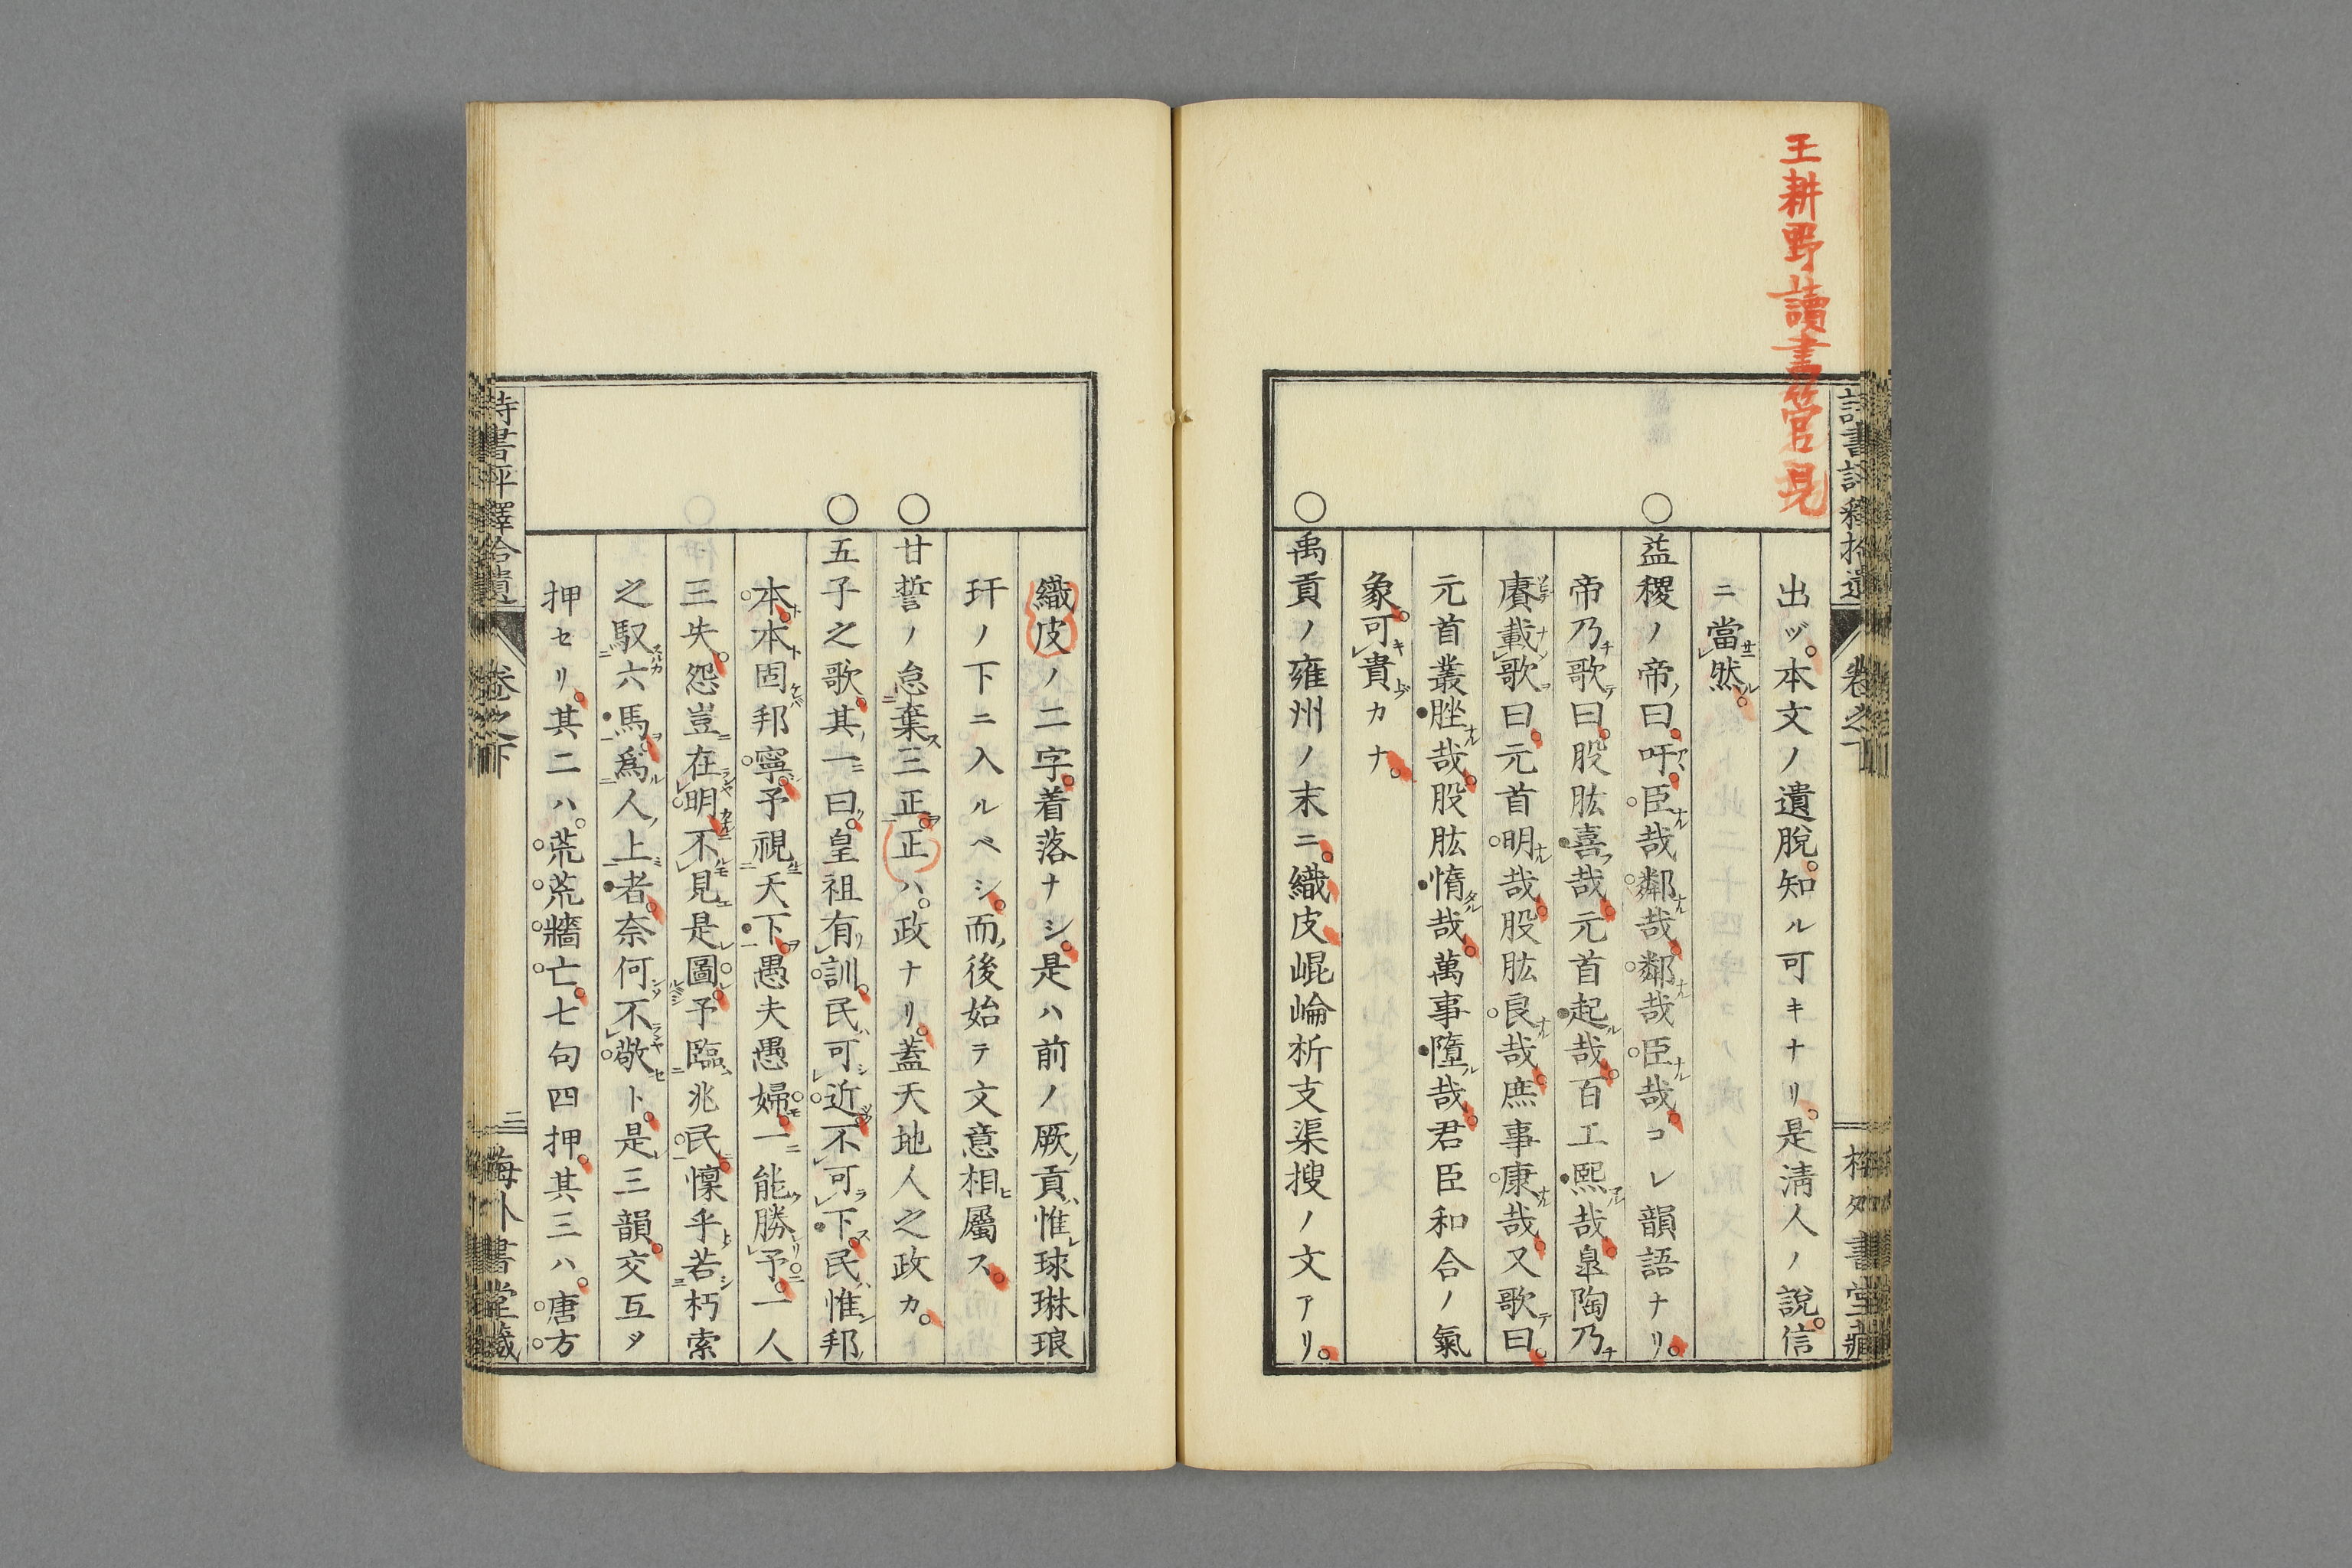 王耕野讀書管見
出ヅ。本文ノ遺脫。知ル可キナリ。是淸人ノ說。信
ニ當然。
○益稷ノ帝曰。吁。臣哉鄰哉。鄰哉臣哉。コレ韻語ナリ。
帝乃歌曰。股肱喜哉。元首起哉。百工熙哉。皐陶乃
賡載歌曰。元首明哉。股肱良哉。庶事康哉。又歌曰。
元首叢脞哉。股肱惰哉。萬事墮哉。君臣和合ノ氣
象。可貴カナ。
○禹貢ノ雍州ノ末ニ。織皮崐崘析支渠搜ノ文アリ。
織皮ノ二字。着落ナシ。是ハ前ノ厥貢惟球琳琅
玕ノ下ニ入ルベシ。而後始テ文意相屬ス。
○甘誓ノ怠棄三正。正ハ。政ナリ。蓋天地人之政カ。
○五子之歌。其一曰。皇祖有訓。民可近。不可下。民惟邦
本。本固邦寧。予視天下。愚夫愚婦。一能勝予。一人
三失。怨豈在明。不見是圖。予臨兆民。懍乎若朽索
之馭六馬。爲人上者。奈何不敬ト。是三韻。交互ヲ
押セリ。其二ハ。荒荒牆亡。七句四押。其三ハ。唐方
詩書評釋拾遺
卷之下
二
梅外書堂藏